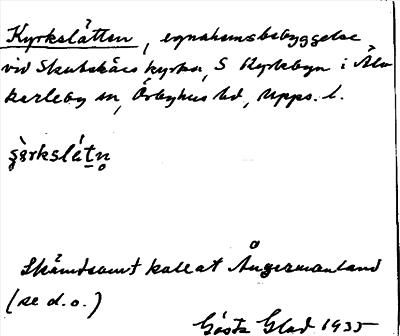 Kyrkslåtten, egnahemsbebyggelse
vid Skutskärs kyrka, S Kyrkbyn i Älv
karleby sn, Örbyhus hd, Upps. l.
Skämtsamt kallat Ångermanland
(se d.o.)
Gösta Glad 1935